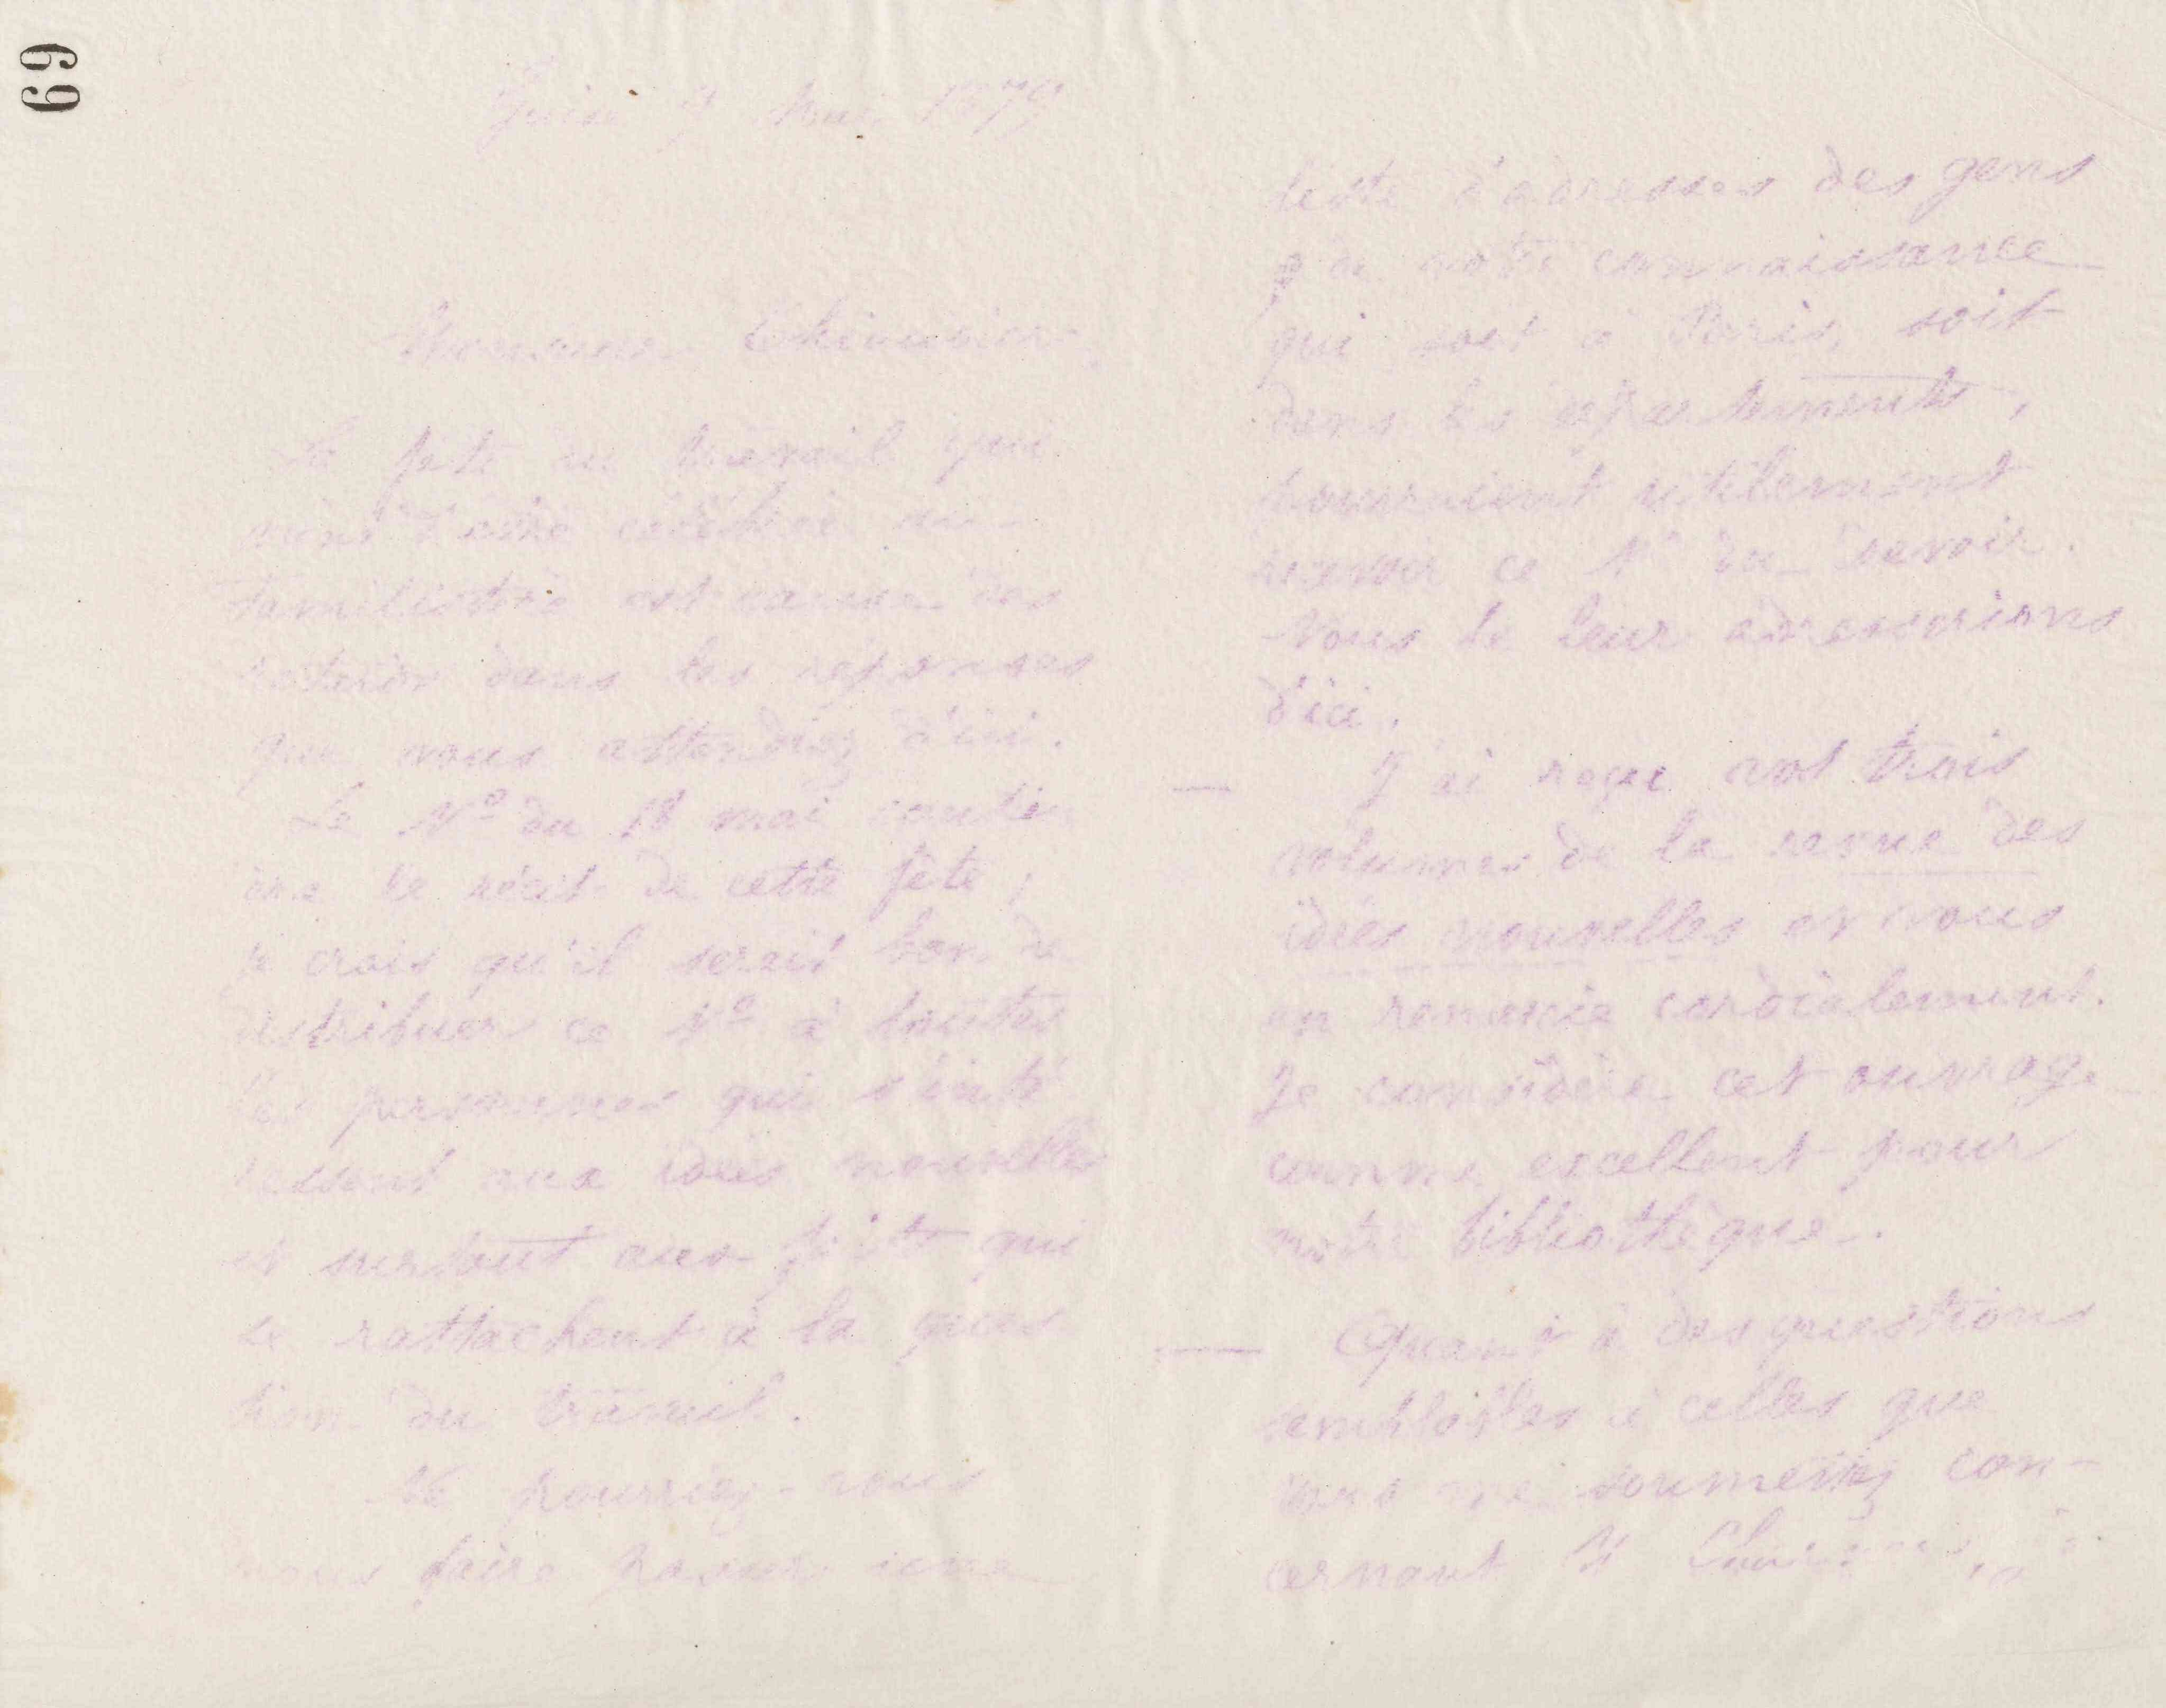 69
Guise 9 Mai 1879
Monsieur
La fête du travail qui
vient d'être célébrée au
familistère est cause des
retards dans les réponses
que vous attendiez d'ici.
Le Nº du 18 mai contien
dra le récit de cette fête ;
je crois qu'il serait bon de
distribuer ce Nº à toutes
les personnes qui s'inté
ressent aux idées nouvelles
et surtout aux faits qui
se rattachent à la ques
tion du travail.
Ne pourriez-vous
nous faire passer une
liste d'adresses des gens
de votre connaissance
qui soit à Paris, soit
dans les départements,
pourraient utilement
recevoir ce Nº du devoir.
Nous le leur adresserions
d'ici.
— J'ai reçu vos trois
volumes de la revue des
idées nouvelles et vous
en remercie cordialement.
Je considère cet ouvrage
comme excellent pour
notre bibliothèque.
— Quant à des questions
semblables à celles que
vous me soumettez con-
cernant M